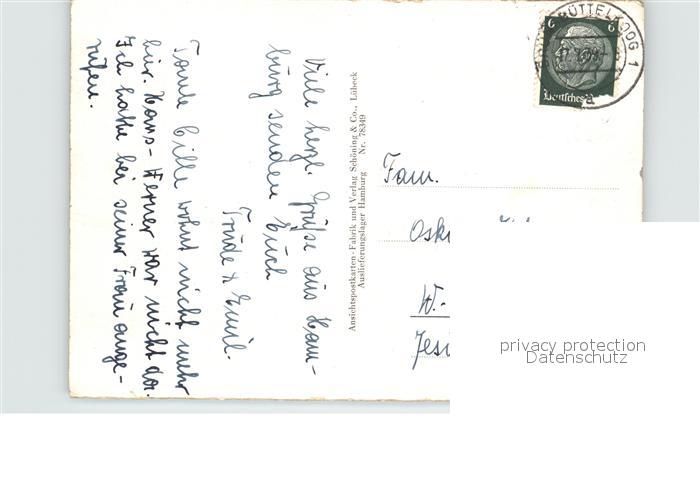 Viele herzl. Grüße aus Ham-
burg senden Euch
Trude & Emil.
Tante Cille wohnt nicht mehr
hier. Hans-Werner war nicht da.
Ich hatte bei seiner Frau ange-
rufen.
Ansichtspostkarten-Fabrik und Verlag Schöning & Co., Lübeck
Auslieferungslager Hamburg Nr. 78349
BÜTTELKOOG 1
a
6 6
Deutsches
Fam.
Osk
W.-
Jesi
privacy protection
Datenschutz